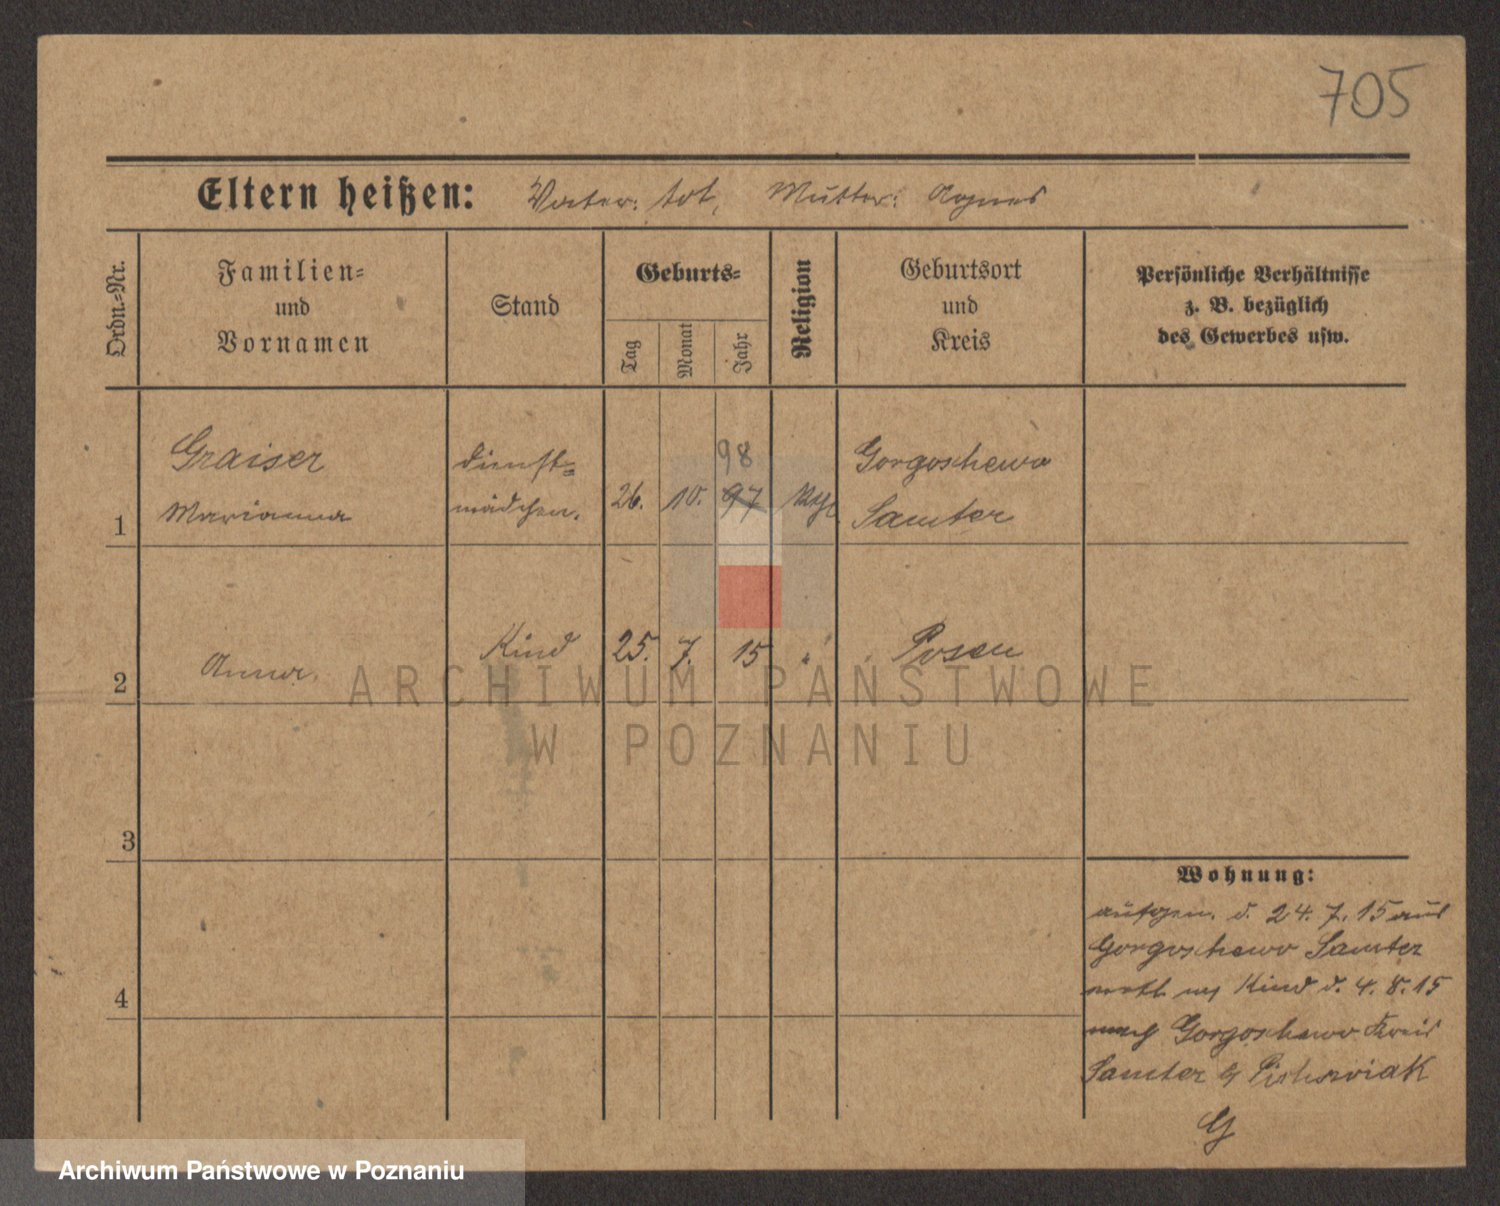 705
Eltern heißen: Vater: tot, Mutter: Agnes
Ordn.-Nr.
Familien-
und
Vornamen
Stand
Geburts-
Tag
Monat
Jahr
Religion
Geburtsort
und
Kreis
Persönliche Verhältnisse
z. B. bezüglich
des Gewerbes usw.
98
Graiser Dienst- Gorgoschewo
1 Marianna mädchen. 26. 10. 97 Samter
2 Anna. Kind 25. 7. 15 " Posen
3
4
Wohnung:
aufgen. d. 24. 7. 15 aus
Gorgoschewo Samter
Kind d. 4. 8. 15
nach Gorgoschewo Kreis
Samter
G
ARCHIWUM PAŃSTWOWE
W POZNANIU
Archiwum Państwowe w Poznaniu